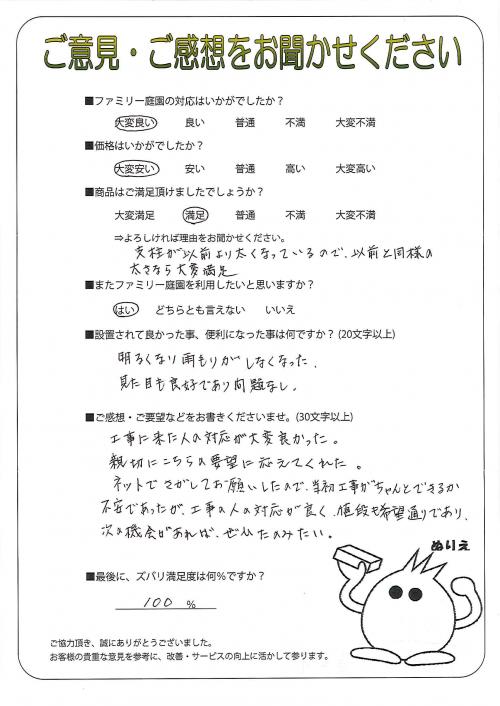 ご意見・ご感想をお聞かせください
■ファミリー庭園の対応はいかがでしたか？
大変良い 良い 普通 不満 大変不満
■価格はいかがでしたか？
大変安い 安い 普通 高い 大変高い
■商品はご満足頂けましたでしょうか？
大変満足 満足 普通 不満 大変不満
⇒よろしければ理由をお聞かせください。
支柱が以前より太くなっているので、以前と同様の
太さなら大変満足
■またファミリー庭園を利用したいと思いますか？
はい どちらとも言えない いいえ
■設置されて良かった事、便利になった事は何ですか？(20文字以上)
明るくなり雨もりがしなくなった。
見た目も良好であり問題なし。
■ご感想・ご要望などをお書きくださいませ。(30文字以上)
工事に来た人の対応が大変良かった。
親切にこちらの要望に応えてくれた。
ネットでさがしてお願いしたので、当初工事がちゃんとできるか
不安であったが、工事の人の対応が良く、値段も希望通りであり、
次の機会があれば、ぜひたのみたい。
ぬりえ
■最後に、ズバリ満足度は何％ですか？
100 %
ご協力頂き、誠にありがとうございました。
お客様の貴重な意見を参考に、改善・サービスの向上に活かして参ります。